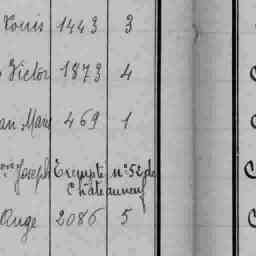 Louis 1443 3
Victor 1873 4
an Marie 469 1
Joseph Exempté n° 52 de
Châteauneuf
Ange 2086 5